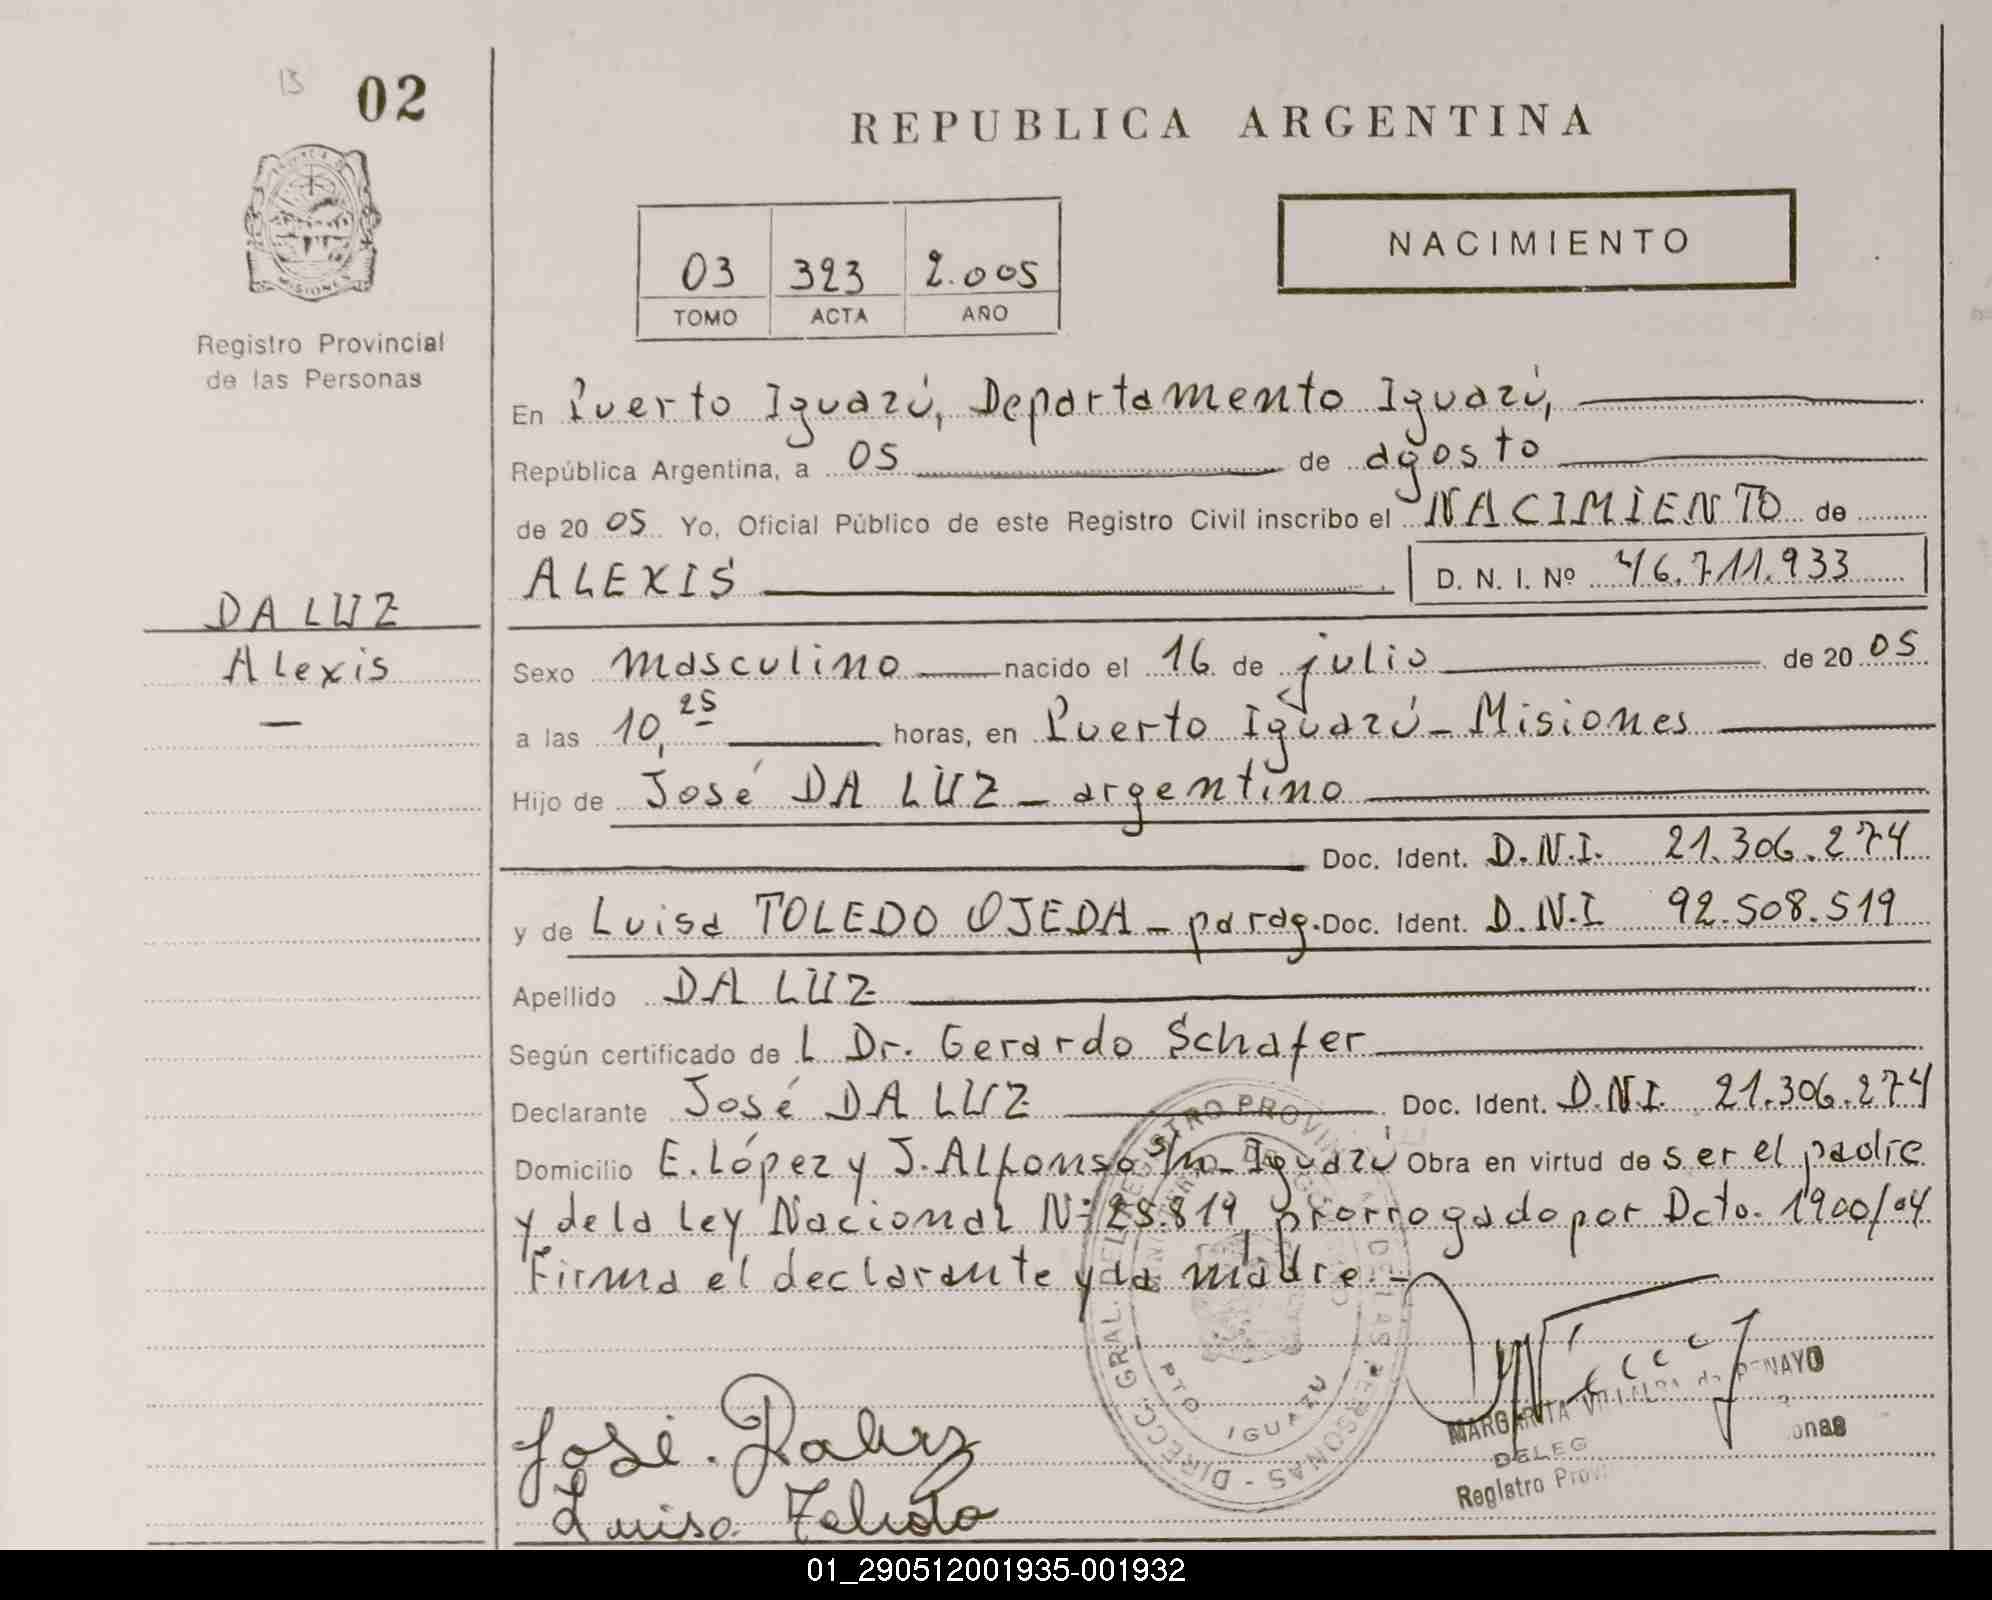 13 02
REPUBLICA ARGENTINA
NACIMIENTO
03 323 2.005
TOMO ACTA AÑO
Registro Provincial
de las Personas
En Puerto Iguazú, Departamento Iguazú,
República Argentina, a 05 de agosto
de 20 05 Yo, Oficial Público de este Registro Civil inscribo el NACIMIENTO de
ALEXIS D. N. I. Nº 46.711.933
DA LUZ
Alexis
Sexo masculino nacido el 16 de julio de 20 05
a las 10,25 horas, en Puerto Iguazú - Misiones
Hijo de José DA LUZ - argentino
Doc. Ident. D.N.I. 21.306.274
y de Luisa TOLEDO OJEDA - parag. Doc. Ident. D.N.I 92.508.519
Apellido DA LUZ
Según certificado de L Dr. Gerardo Schafer
Declarante José DA LUZ Doc. Ident. D.N.I. 21.306.274
Domicilio E. López y J. Alfonso s/n - Iguazú Obra en virtud de ser el padre
y de la Ley Nacional Nº 25.819, prorrogado por Dcto. 1900/04
Firma el declarante y la madre.-
DIRECC. GRAL. DEL REGISTRO PROVINCIAL DE LAS PERSONAS
PTO IGUAZU
José Daluz
Luisa Toledo
MARGARITA
DELEG
Registro Prov
onas
01_290512001935-001932